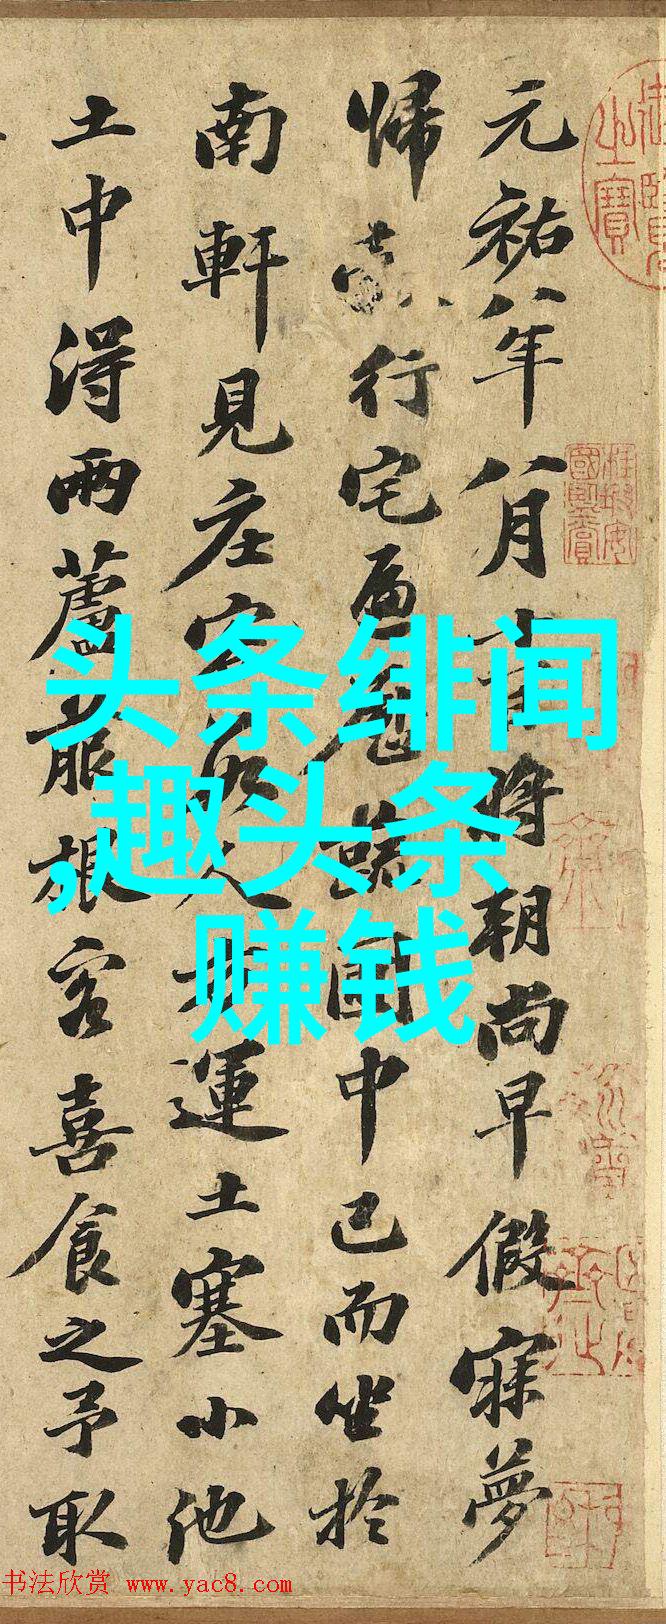 元祐八年八月將朝尚早假寐夢
歸行宅遍蔬圃中已而坐於
南軒見庄客人方運土塞小池
土中得兩蘆菔根客喜食之予取
头条绯闻
,趣头条
赚钱
书法欣赏 www.yac8.com